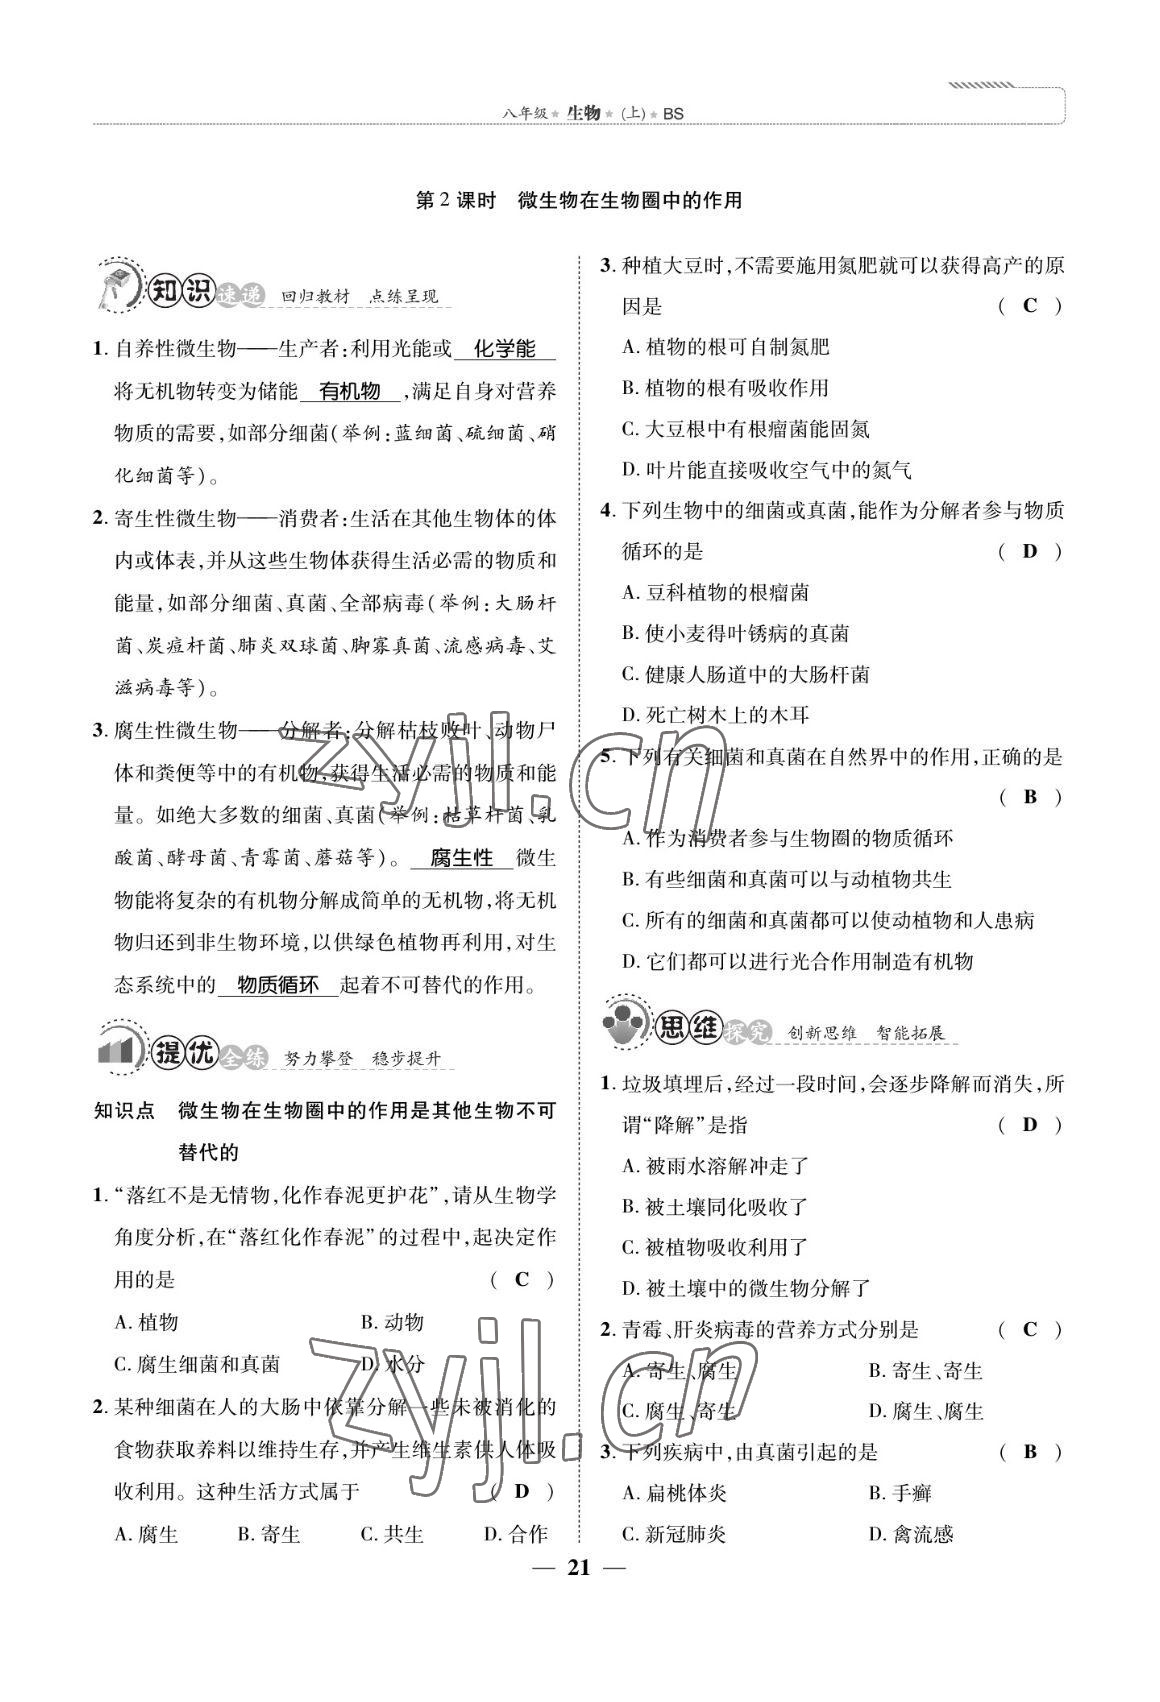 八年级 生物 (上) BS
第2课时　微生物在生物圈中的作用
知识速递　回归教材　点练呈现
1. 自养性微生物——生产者:利用光能或 化学能
将无机物转变为储能 有机物 ,满足自身对营养
物质的需要,如部分细菌(举例:蓝细菌、硫细菌、硝
化细菌等)。
2. 寄生性微生物——消费者:生活在其他生物体的体
内或体表,并从这些生物体获得生活必需的物质和
能量,如部分细菌、真菌、全部病毒(举例:大肠杆
菌、炭疽杆菌、肺炎双球菌、脚寡真菌、流感病毒、艾
滋病毒等)。
3. 腐生性微生物——分解者:分解枯枝败叶、动物尸
体和粪便等中的有机物,获得生活必需的物质和能
量。如绝大多数的细菌、真菌(举例:枯草杆菌、乳
酸菌、酵母菌、青霉菌、蘑菇等)。 腐生性 微生
物能将复杂的有机物分解成简单的无机物,将无机
物归还到非生物环境,以供绿色植物再利用,对生
态系统中的 物质循环 起着不可替代的作用。
提优全练　努力攀登　稳步提升
知识点　微生物在生物圈中的作用是其他生物不可
替代的
1. “落红不是无情物,化作春泥更护花”,请从生物学
角度分析,在“落红化作春泥”的过程中,起决定作
用的是 ( C )
A. 植物　B. 动物
C. 腐生细菌和真菌　D. 水分
2. 某种细菌在人的大肠中依靠分解一些未被消化的
食物获取养料以维持生存,并产生维生素供人体吸
收利用。这种生活方式属于 ( D )
A. 腐生　B. 寄生　C. 共生　D. 合作
3. 种植大豆时,不需要施用氮肥就可以获得高产的原
因是 ( C )
A. 植物的根可自制氮肥
B. 植物的根有吸收作用
C. 大豆根中有根瘤菌能固氮
D. 叶片能直接吸收空气中的氮气
4. 下列生物中的细菌或真菌,能作为分解者参与物质
循环的是 ( D )
A. 豆科植物的根瘤菌
B. 使小麦得叶锈病的真菌
C. 健康人肠道中的大肠杆菌
D. 死亡树木上的木耳
5. 下列有关细菌和真菌在自然界中的作用,正确的是
( B )
A. 作为消费者参与生物圈的物质循环
B. 有些细菌和真菌可以与动植物共生
C. 所有的细菌和真菌都可以使动植物和人患病
D. 它们都可以进行光合作用制造有机物
思维探究　创新思维　智能拓展
1. 垃圾填埋后,经过一段时间,会逐步降解而消失,所
谓“降解”是指 ( D )
A. 被雨水溶解冲走了
B. 被土壤同化吸收了
C. 被植物吸收利用了
D. 被土壤中的微生物分解了
2. 青霉、肝炎病毒的营养方式分别是 ( C )
A. 寄生、腐生　B. 寄生、寄生
C. 腐生、寄生　D. 腐生、腐生
3. 下列疾病中,由真菌引起的是 ( B )
A. 扁桃体炎　B. 手癣
C. 新冠肺炎　D. 禽流感
— 21 —
zyjl.cn
zyjl.cn